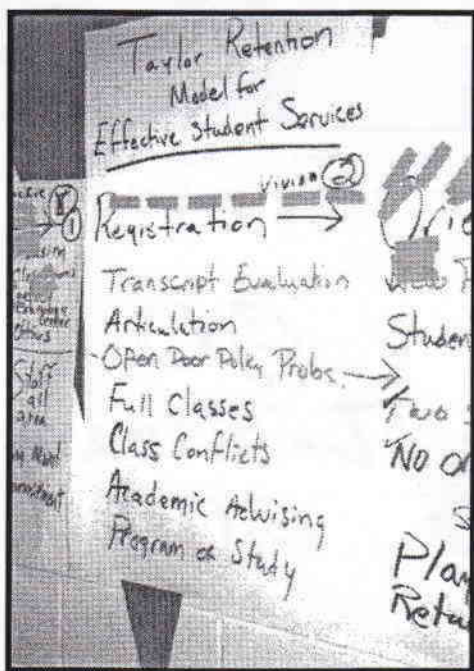 Taylor Retention
Model for
Effective Student Services
Vivian 2
Registration
Transcript Evaluation
Articulation
Open Door Policy Probs.
Full Classes
Class Conflicts
Academic Advising
Program of Study
1
Center
Others
Staff
all
area
Studen
Two
No O
Plan
Retu